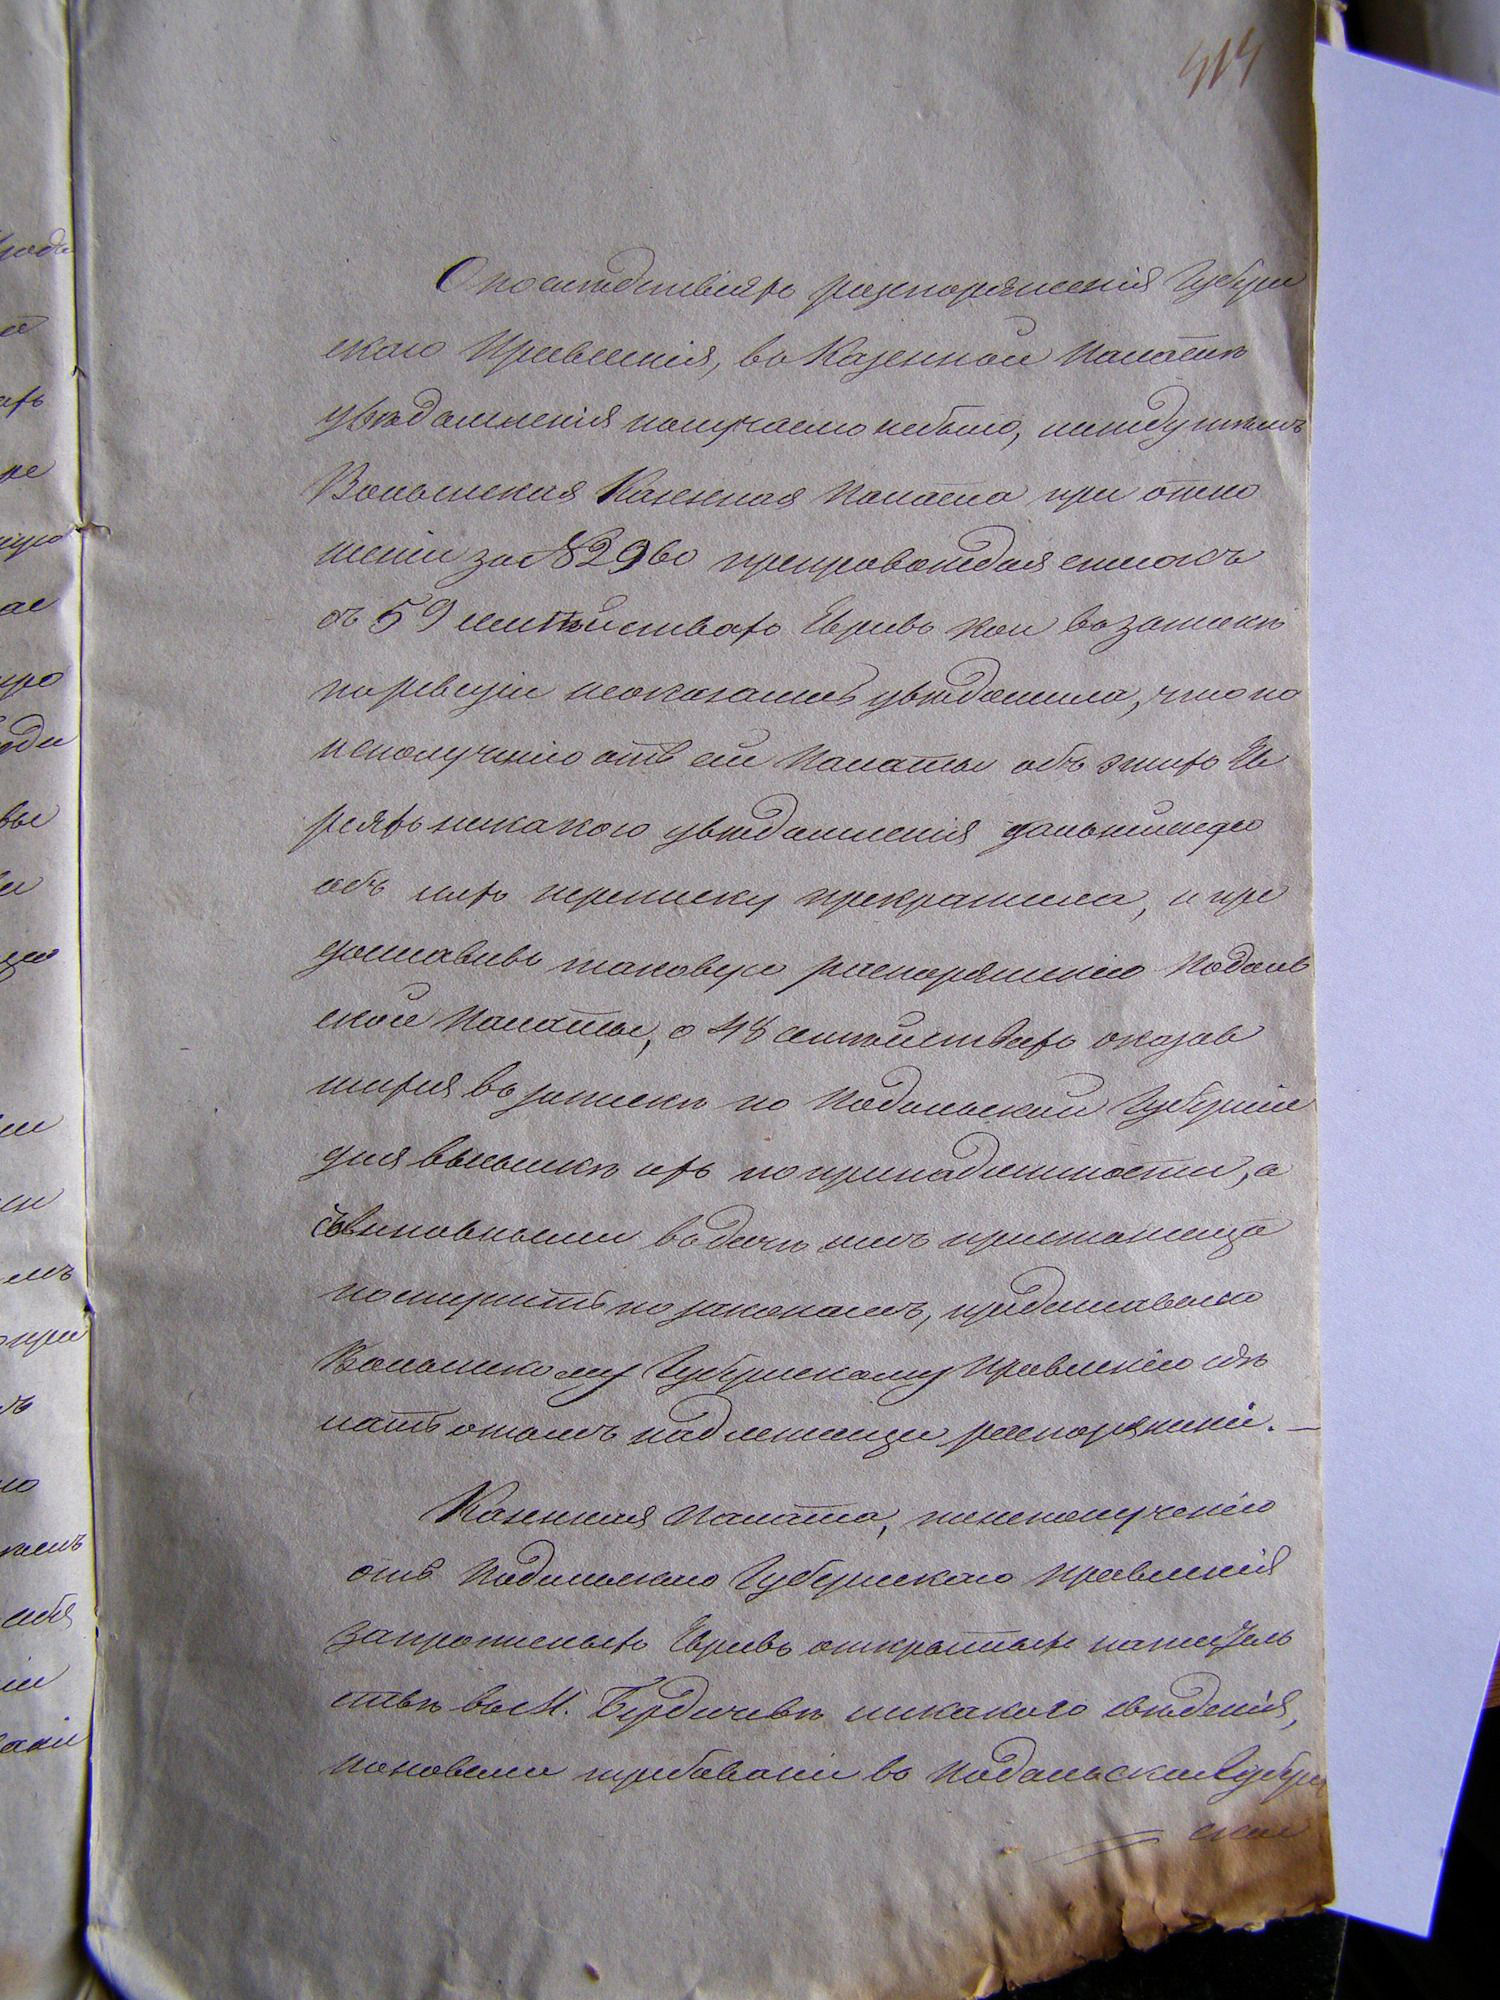 414
О последствіяхъ распоряженія Губерн
скаго Правленія, въ Казенной Палатѣ
увѣдомленія получаемо небыло, между тѣмъ
Волынская Казенная Палата при отно
шеніи за № 2960 препровождая списокъ
о 59 семѣйствахъ Евреевъ кои въ запискѣ
по ревизіи неоказались увѣдомила, что по
неполученію отъ сей Палаты объ этихъ Ев
реяхъ никакого увѣдомленія дальнейшую
объ нихъ переписку прекратила, и пре
доставивъ таковую распоряженію Подоль
ской Палаты, о 48 семѣйствахъ оказав
шихся въ запискѣ по Подольской Губерніи
для высылки ихъ по принадлежности, а
съ виновными въ дачи имъ пристанища
поступить по законамъ, предоставила
Волынскому Губернскому Правленію сдѣ
лать о томъ надлежащее распоряженіе. —
Казенная Палата, по неполученію
отъ Подольскаго Губернскаго Правленія
запрошеныхъ Евреевъ открытыхъ на житель
ствѣ въ М. Бердичевѣ никакого свѣденія,
поновели требованіе въ Подольское Губерн
ское